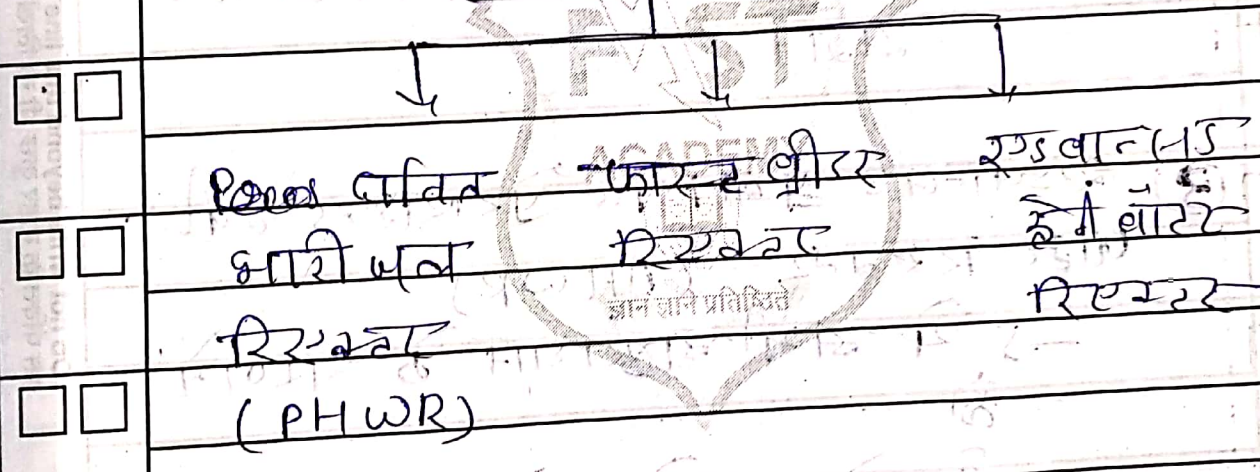 दाबित
भारी जल
रिएक्टर
(PHWR)
फास्ट ब्रीडर
रिएक्टर
एडवान्सड
हैवी वाटर
रिएक्टर
MST
ACADEMY
ज्ञानं लाने प्रतिष्ठिते